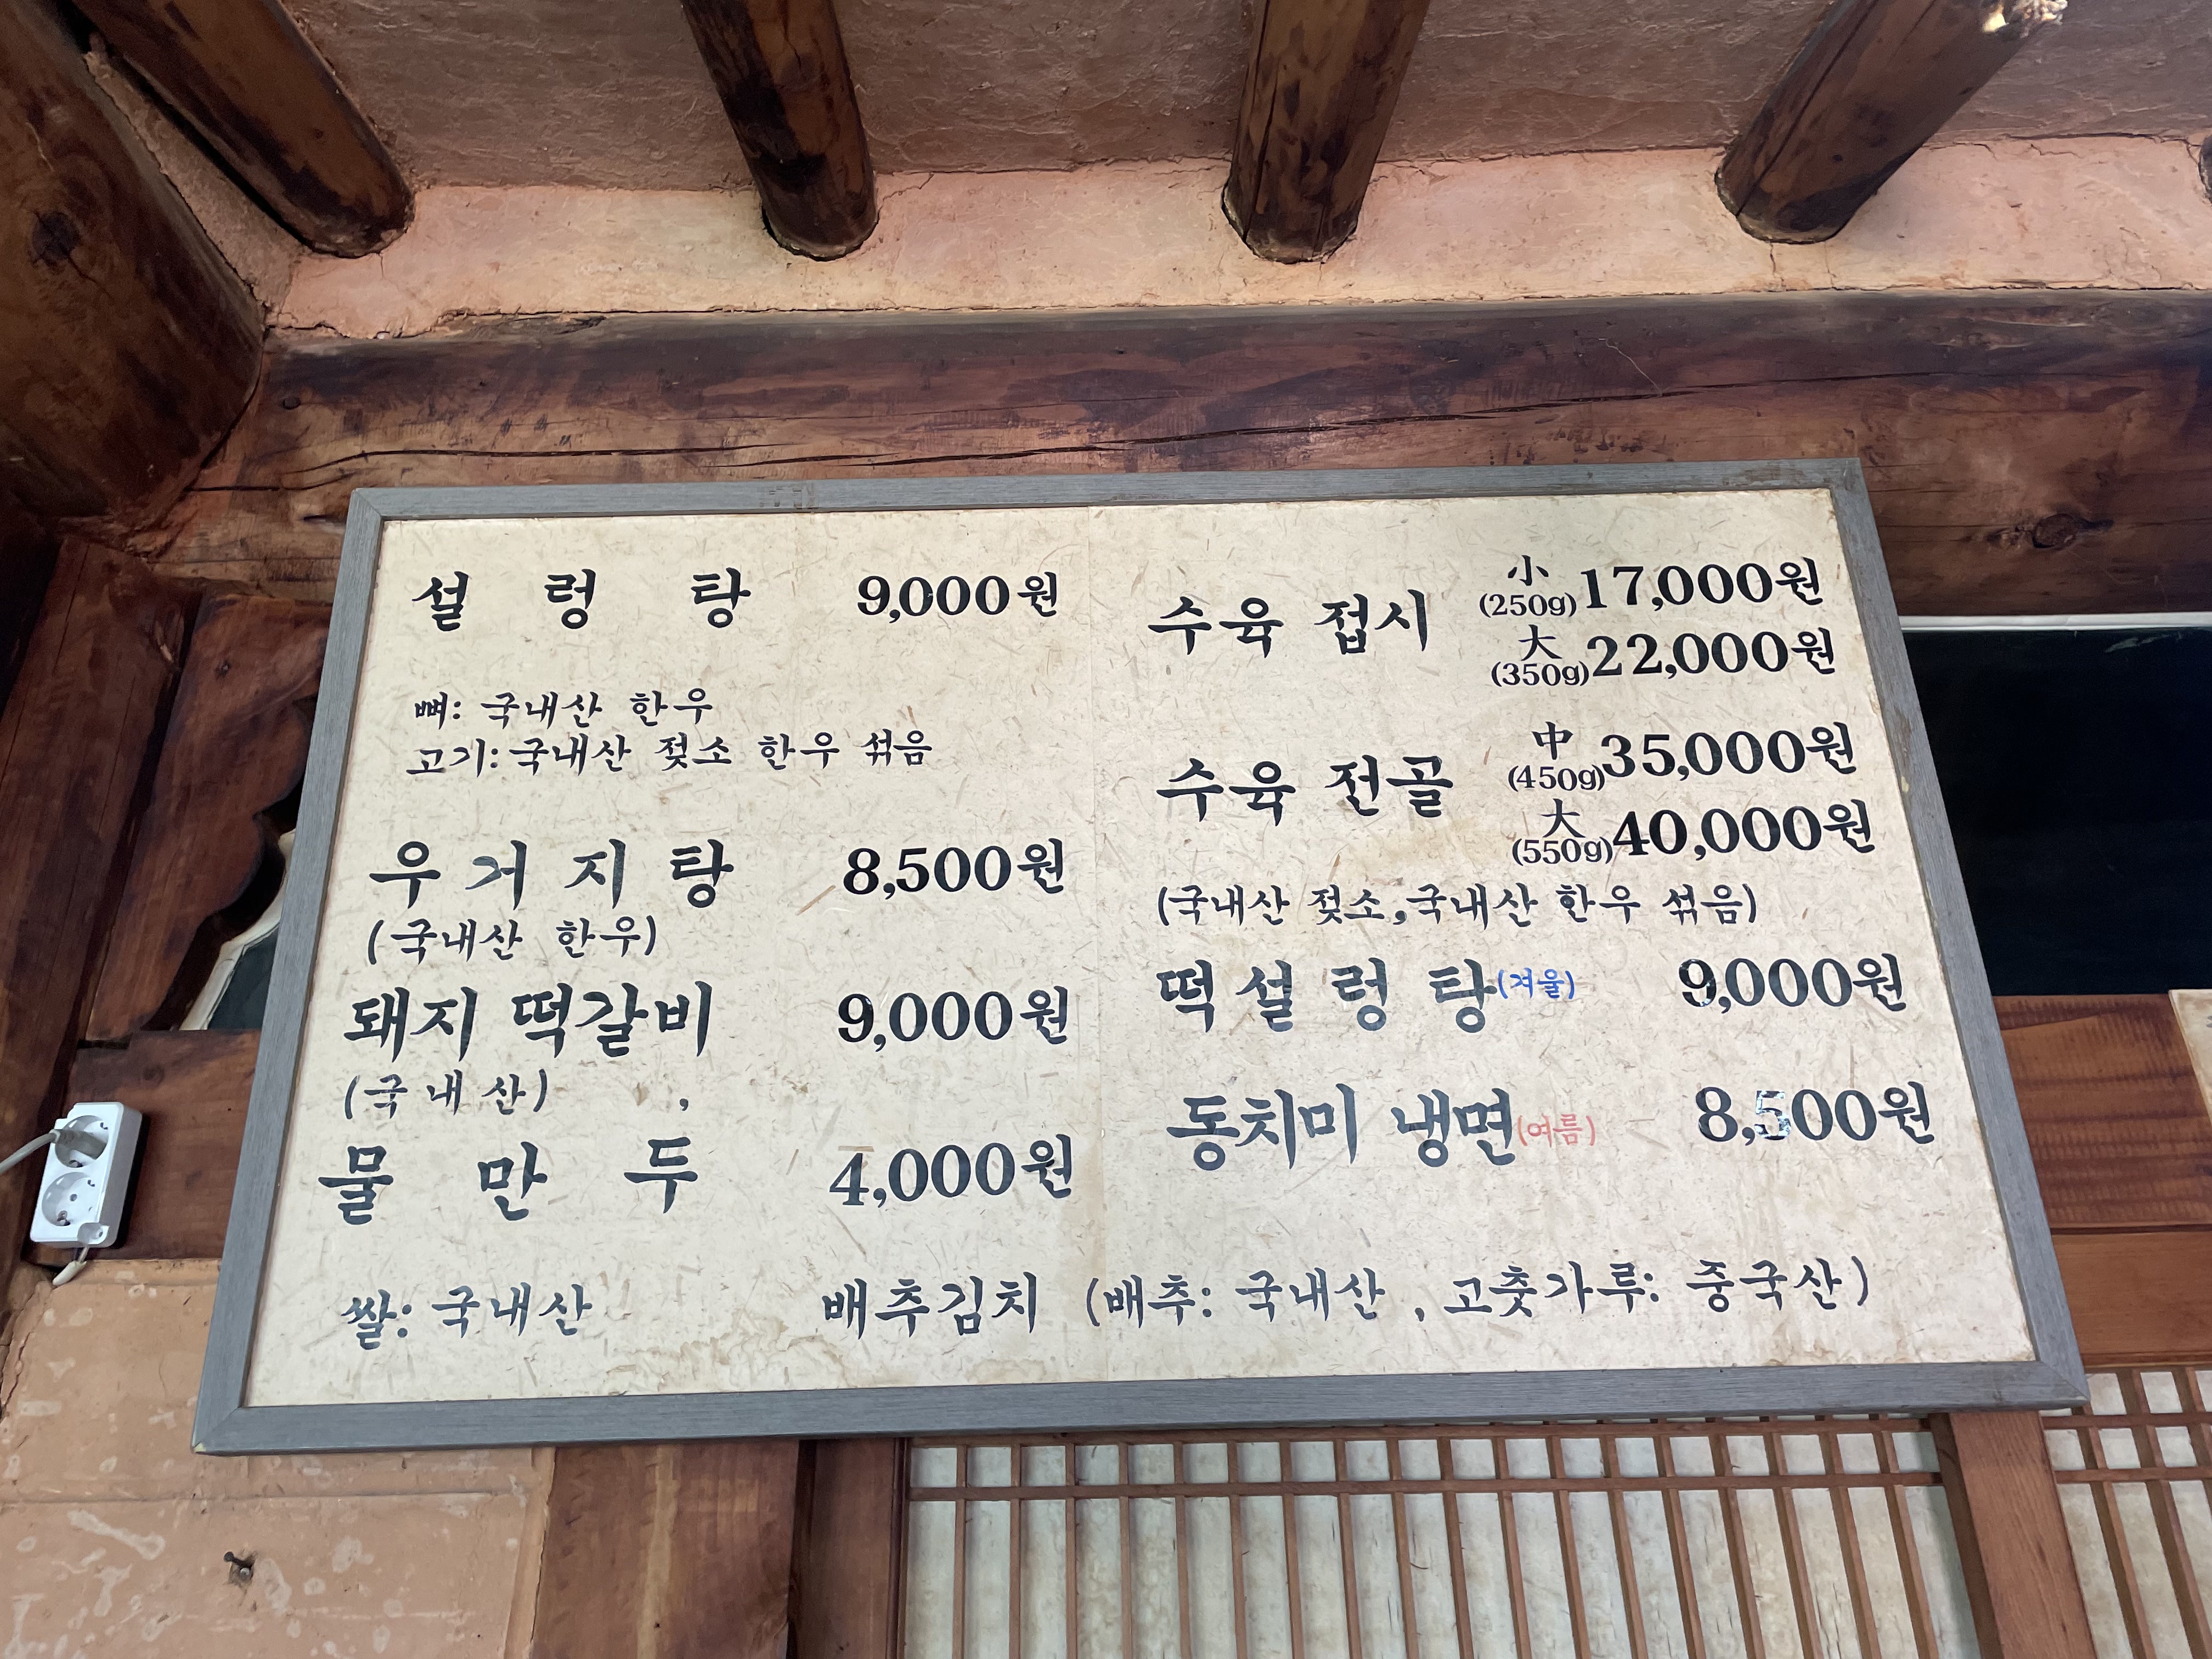 설렁탕 9,000원
뼈: 국내산 한우
고기: 국내산 젖소 한우 섞음
우거지탕 8,500원
(국내산 한우)
돼지 떡갈비 9,000원
(국내산) ,
물만두 4,000원
수육 접시 小 (250g) 17,000원
大 (350g) 22,000원
수육 전골 中 (450g) 35,000원
大 (550g) 40,000원
(국내산 젖소,국내산 한우 섞음)
떡설렁탕(겨울) 9,000원
동치미 냉면(여름) 8,500원
쌀: 국내산 배추김치 (배추: 국내산 , 고춧가루: 중국산)